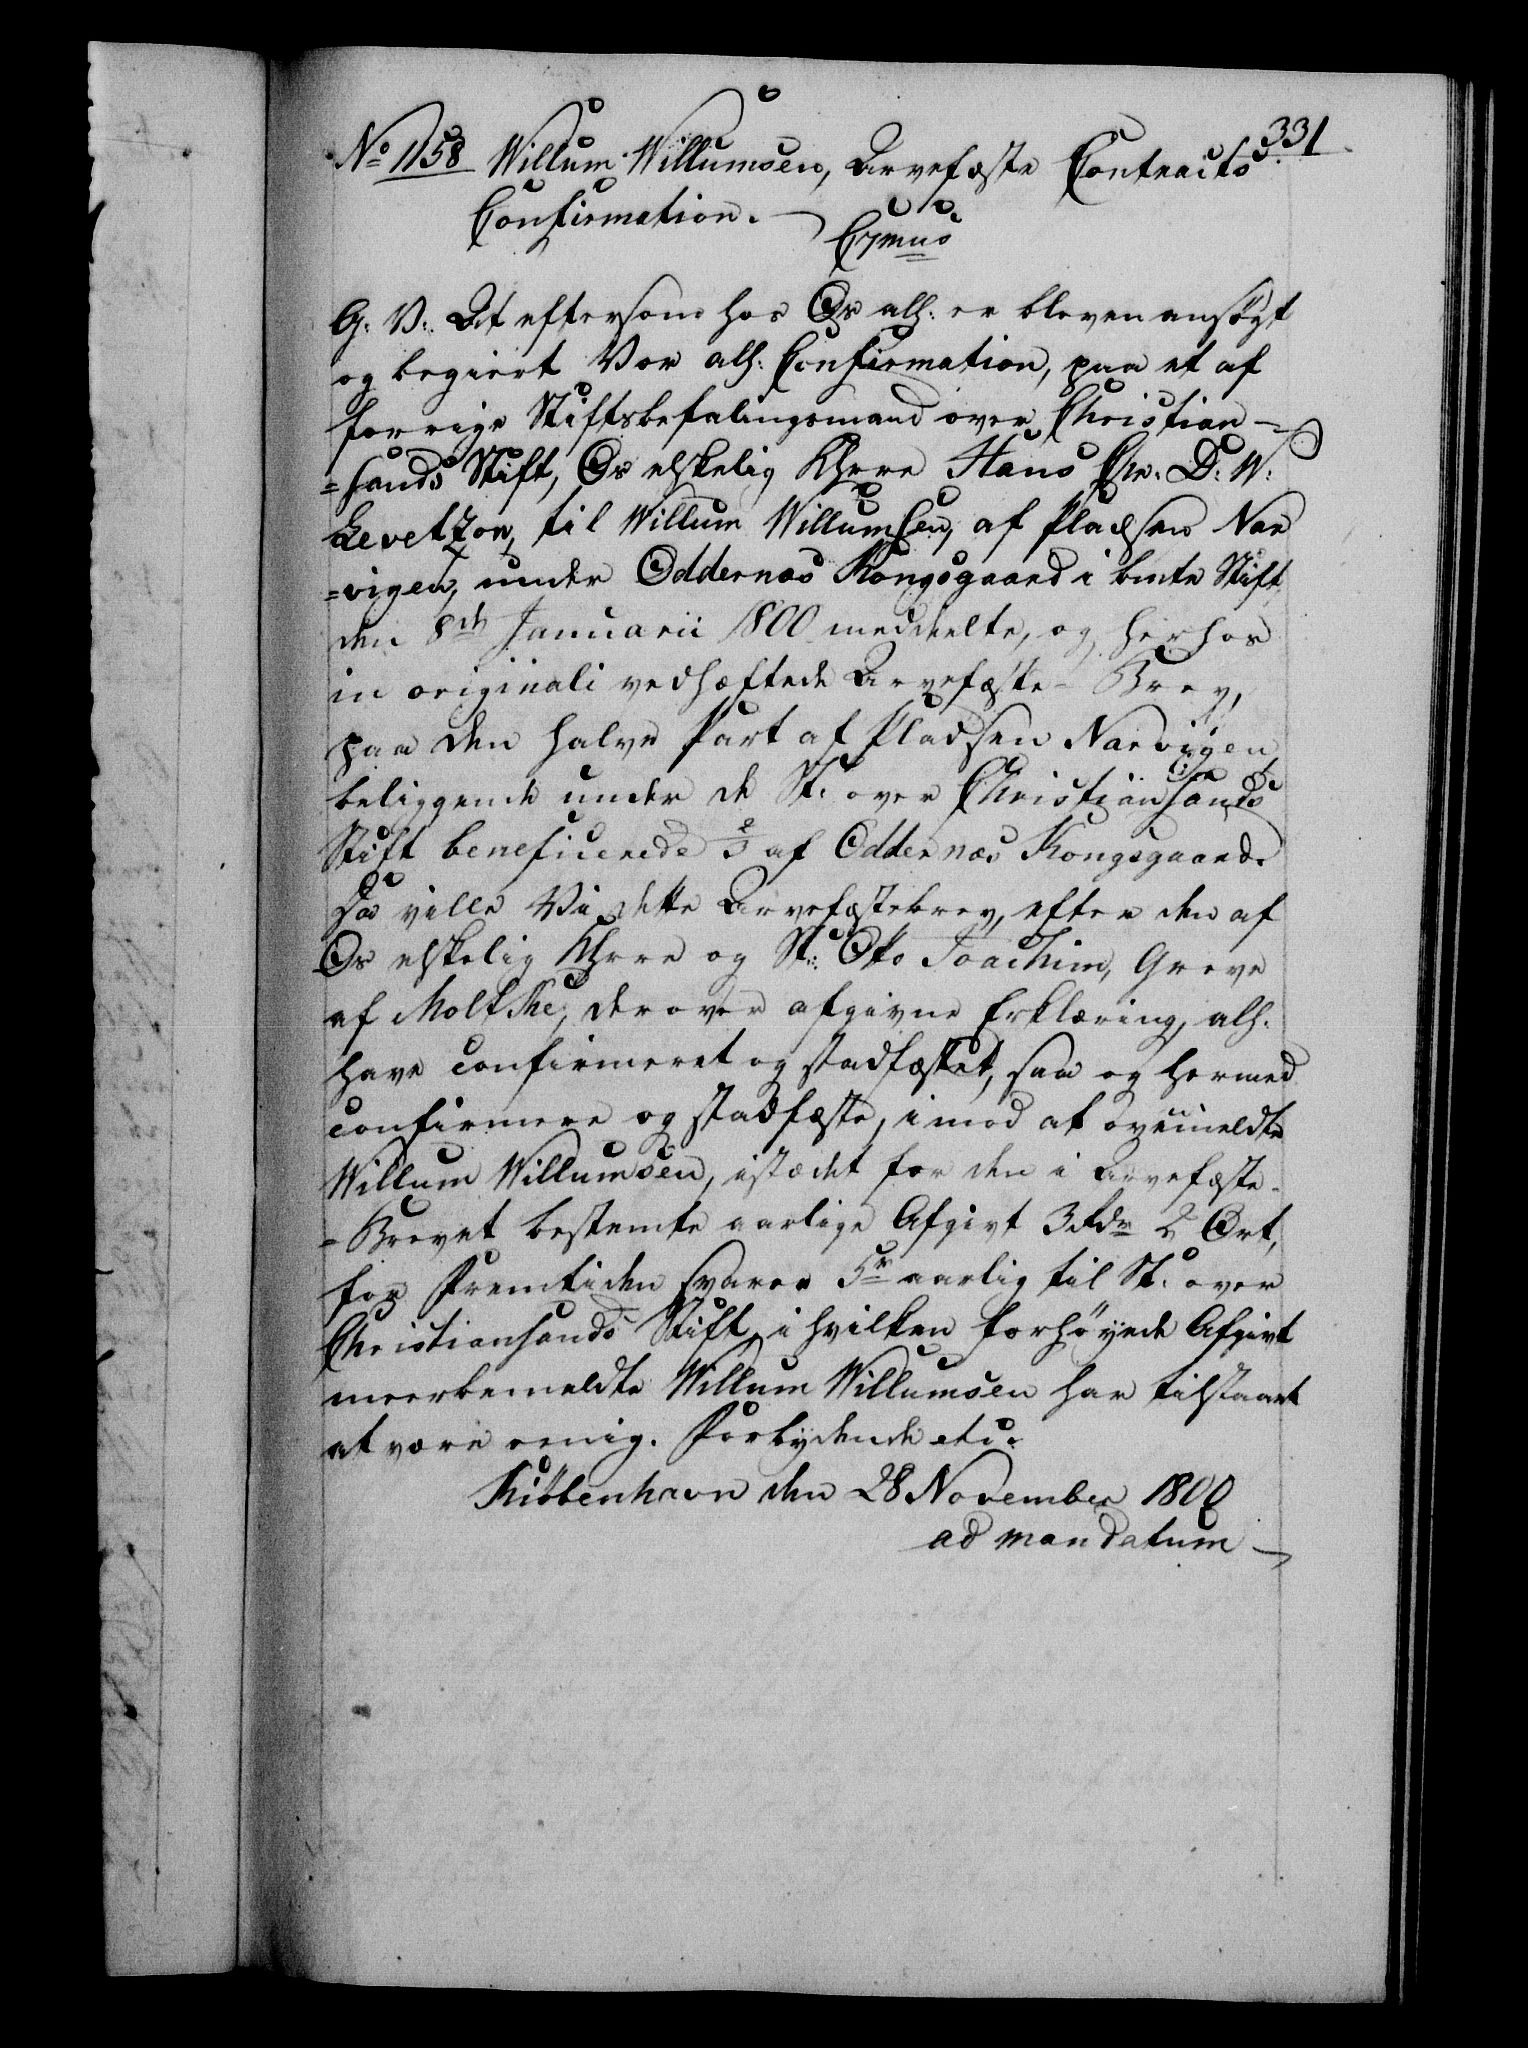 331
No 1158 Willum Willumsen, Arvefæste Contracts
Confirmation.
G: V: At eftersom hos Os allh: er bleven ansøgt
og begiert Vor allh: Confirmation, paa et af
forrige Stiftsbefalingsmand over Christian-
=sands Stift, Os elskelig Hrere Hans Chr: D: W:
Levetzon, til Willum Willumsen, af Pladsen Nar
=vigen, under Oddernæs Kongsgaard i bmte Stift,
den 8de Januarii 1800 meddeelte, og herhos
in originali vedhæftede Arvefæste-Brev,
paa den halve Part af Pladsen Narvigen,
beliggende under de St: over Christiansands
Stift beneficerede 2/3 af Oddernæs Kongsgaard.
Da ville Vi dette Arvefæstebrev, efter den af
Os elskelig Hrere og St: Otto Joachim, Greve
af Moltke, derover afgivne Erklæring, allh:
have confirmeret og stadfæstet, saa og hermed
confirmere og stadfæste, imod at ovenmeldte
Willum Willumsen, istædet for den i Arvefæste-
=Brevet bestemte aarlige Afgivt 3 Rdr 2 Ort,
for Fremtiden svarer 5 r aarlig til St: over
Christiansands Stift, i hvilken forhøyede Afgivt
meerbemeldte Willum Willumsen har tilstaaet
at være eenig. Forbydende etc.
Kiöbenhavn den 28 November 1800
ad mandatum